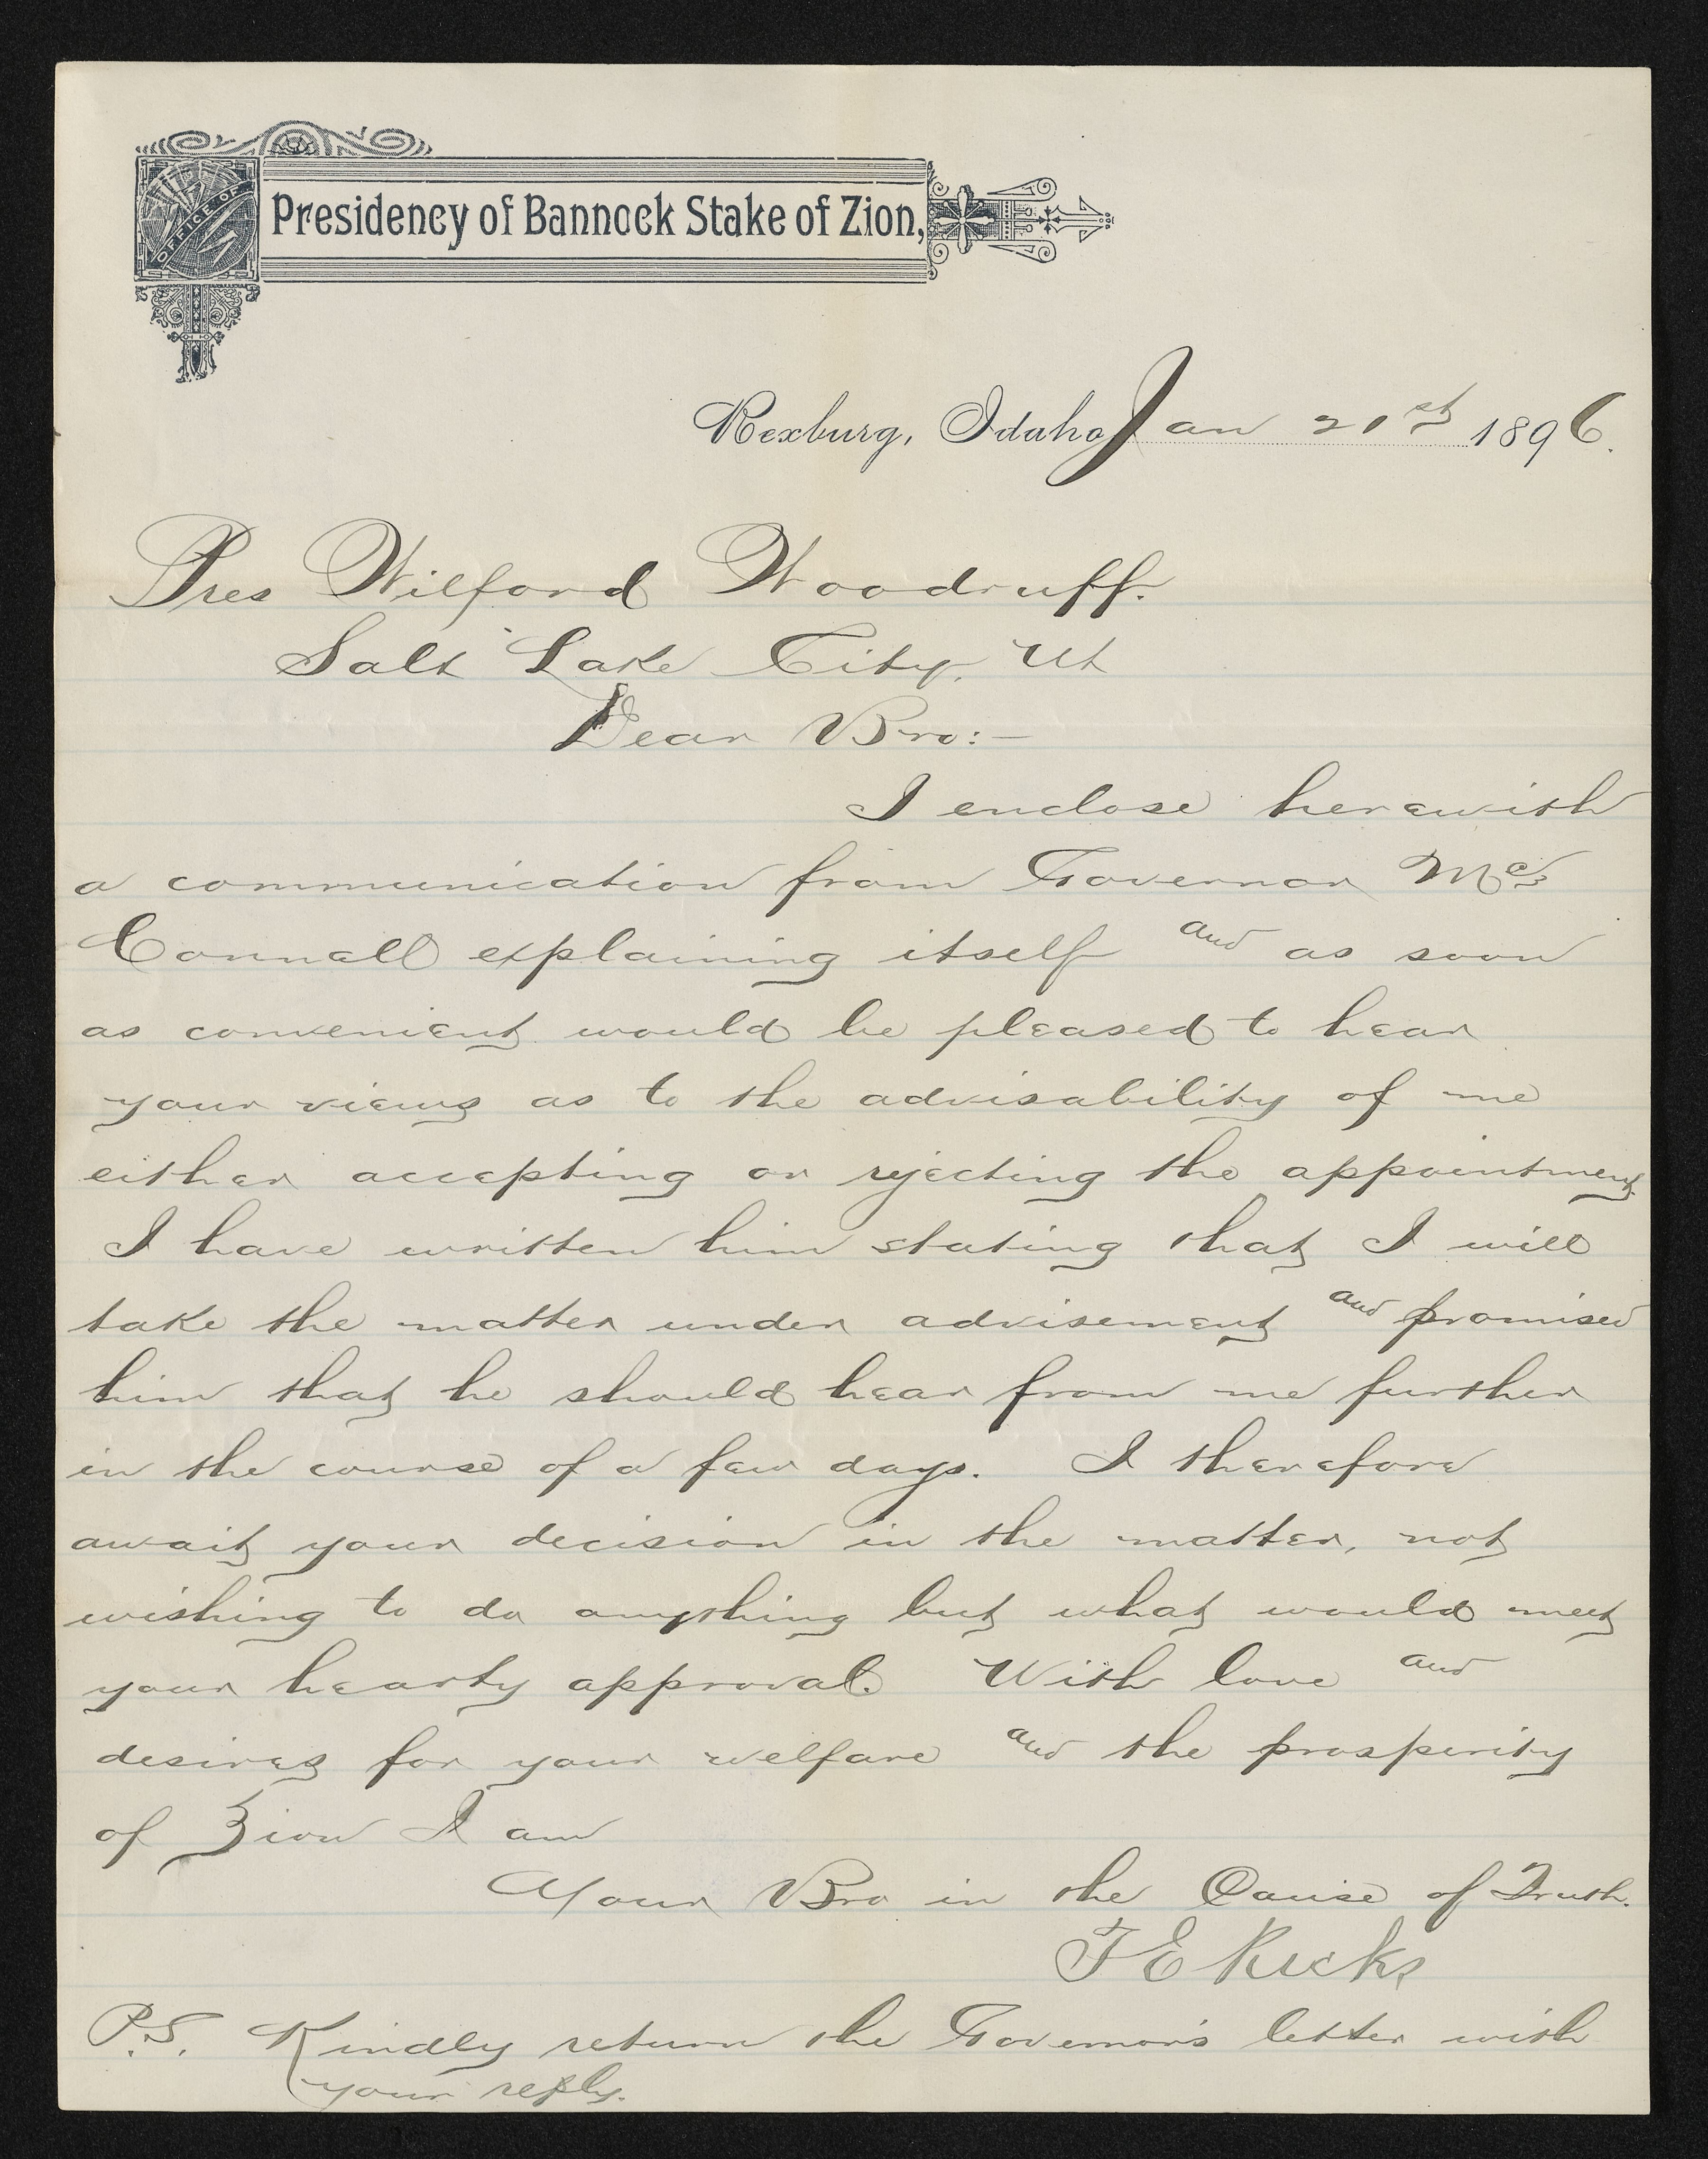 OFFICE OF
Presidency of Bannock Stake of Zion,
Rexburg, Idaho, Jan 21st 1896.
Pres Wilford Woodruff.
Salt Lake City, Ut
Dear Bro:—
I enclose herewith
a communication from Governor Mc
Connell explaining itself and as soon
as convenient would be pleased to hear
your views as to the advisability of me
either accepting or rejecting the appointment.
I have written him stating that I will
take the matter under advisement and promised
him that he should hear from me further
in the course of a few days. I therefore
await your decision in the matter, not
wishing to do anything but what would meet
your hearty approval. With love and
desires for your welfare and the prosperity
of Zion I am
Your Bro in the Cause of Truth.
T E Ricks
P.S. Kindly return the Governor's letter with
your reply.